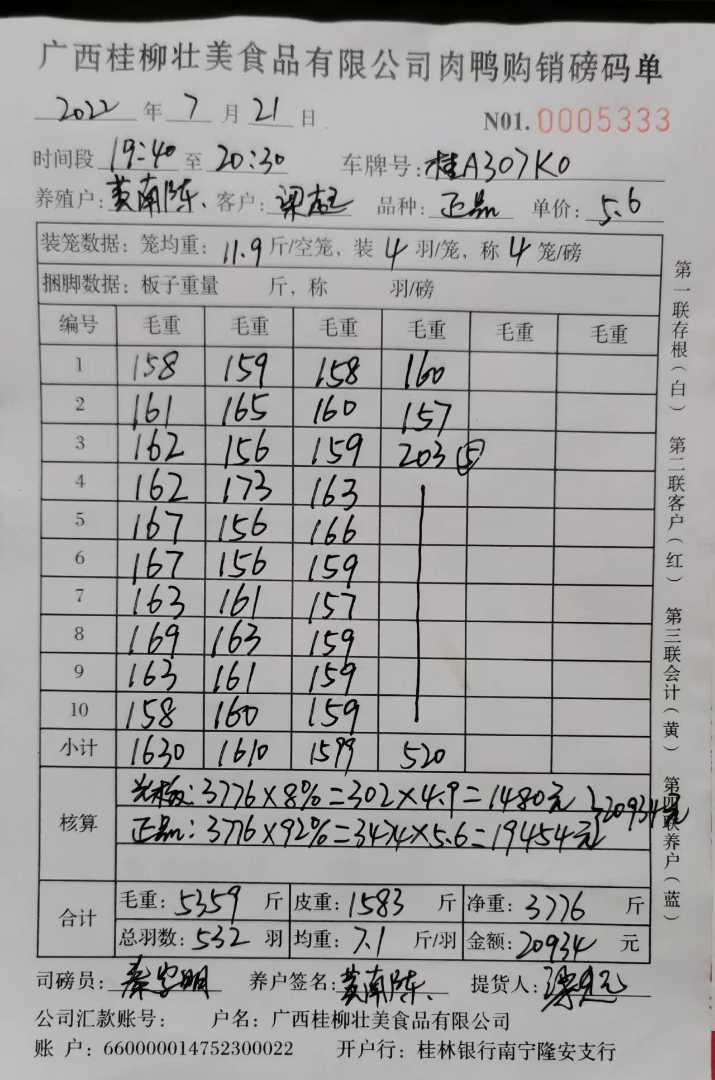 广西桂柳壮美食品有限公司肉鸭购销磅码单
2022 年 7 月 21 日 N01. 0005333
时间段 19:40 至 20:30 车牌号: 桂A307K0
养殖户: 黄南陈. 客户: 品种: 正品 单价: 5.6
装笼数据: 笼均重: 11.9 斤/空笼, 装 4 羽/笼, 称 4 笼/磅
捆脚数据: 板子重量 斤, 称 羽/磅
编号 毛重 毛重 毛重 毛重 毛重 毛重
1 158 159 158 160
2 161 165 160 157
3 162 156 159 203 ⑤
4 162 173 163
5 167 156 166
6 167 156 159
7 163 161 157
8 169 163 159
9 163 161 159
10 158 160 159
小计 1630 1610 1599 520
核算
光板: 3776×8%=302×4.9=1480元 }20934元
正品: 3776×92%=3474×5.6=19454元
合计
毛重: 5359 斤 皮重: 1583 斤 净重: 3776 斤
总羽数: 532 羽 均重: 7.1 斤/羽 金额: 20934 元
司磅员: 养户签名: 黄南陈. 提货人:
公司汇款账号: 户名: 广西桂柳壮美食品有限公司
账 户: 660000014752300022 开户行: 桂林银行南宁隆安支行
第一联存根(白) 第二联客户(红) 第三联会计(黄) 第四联养户(蓝)